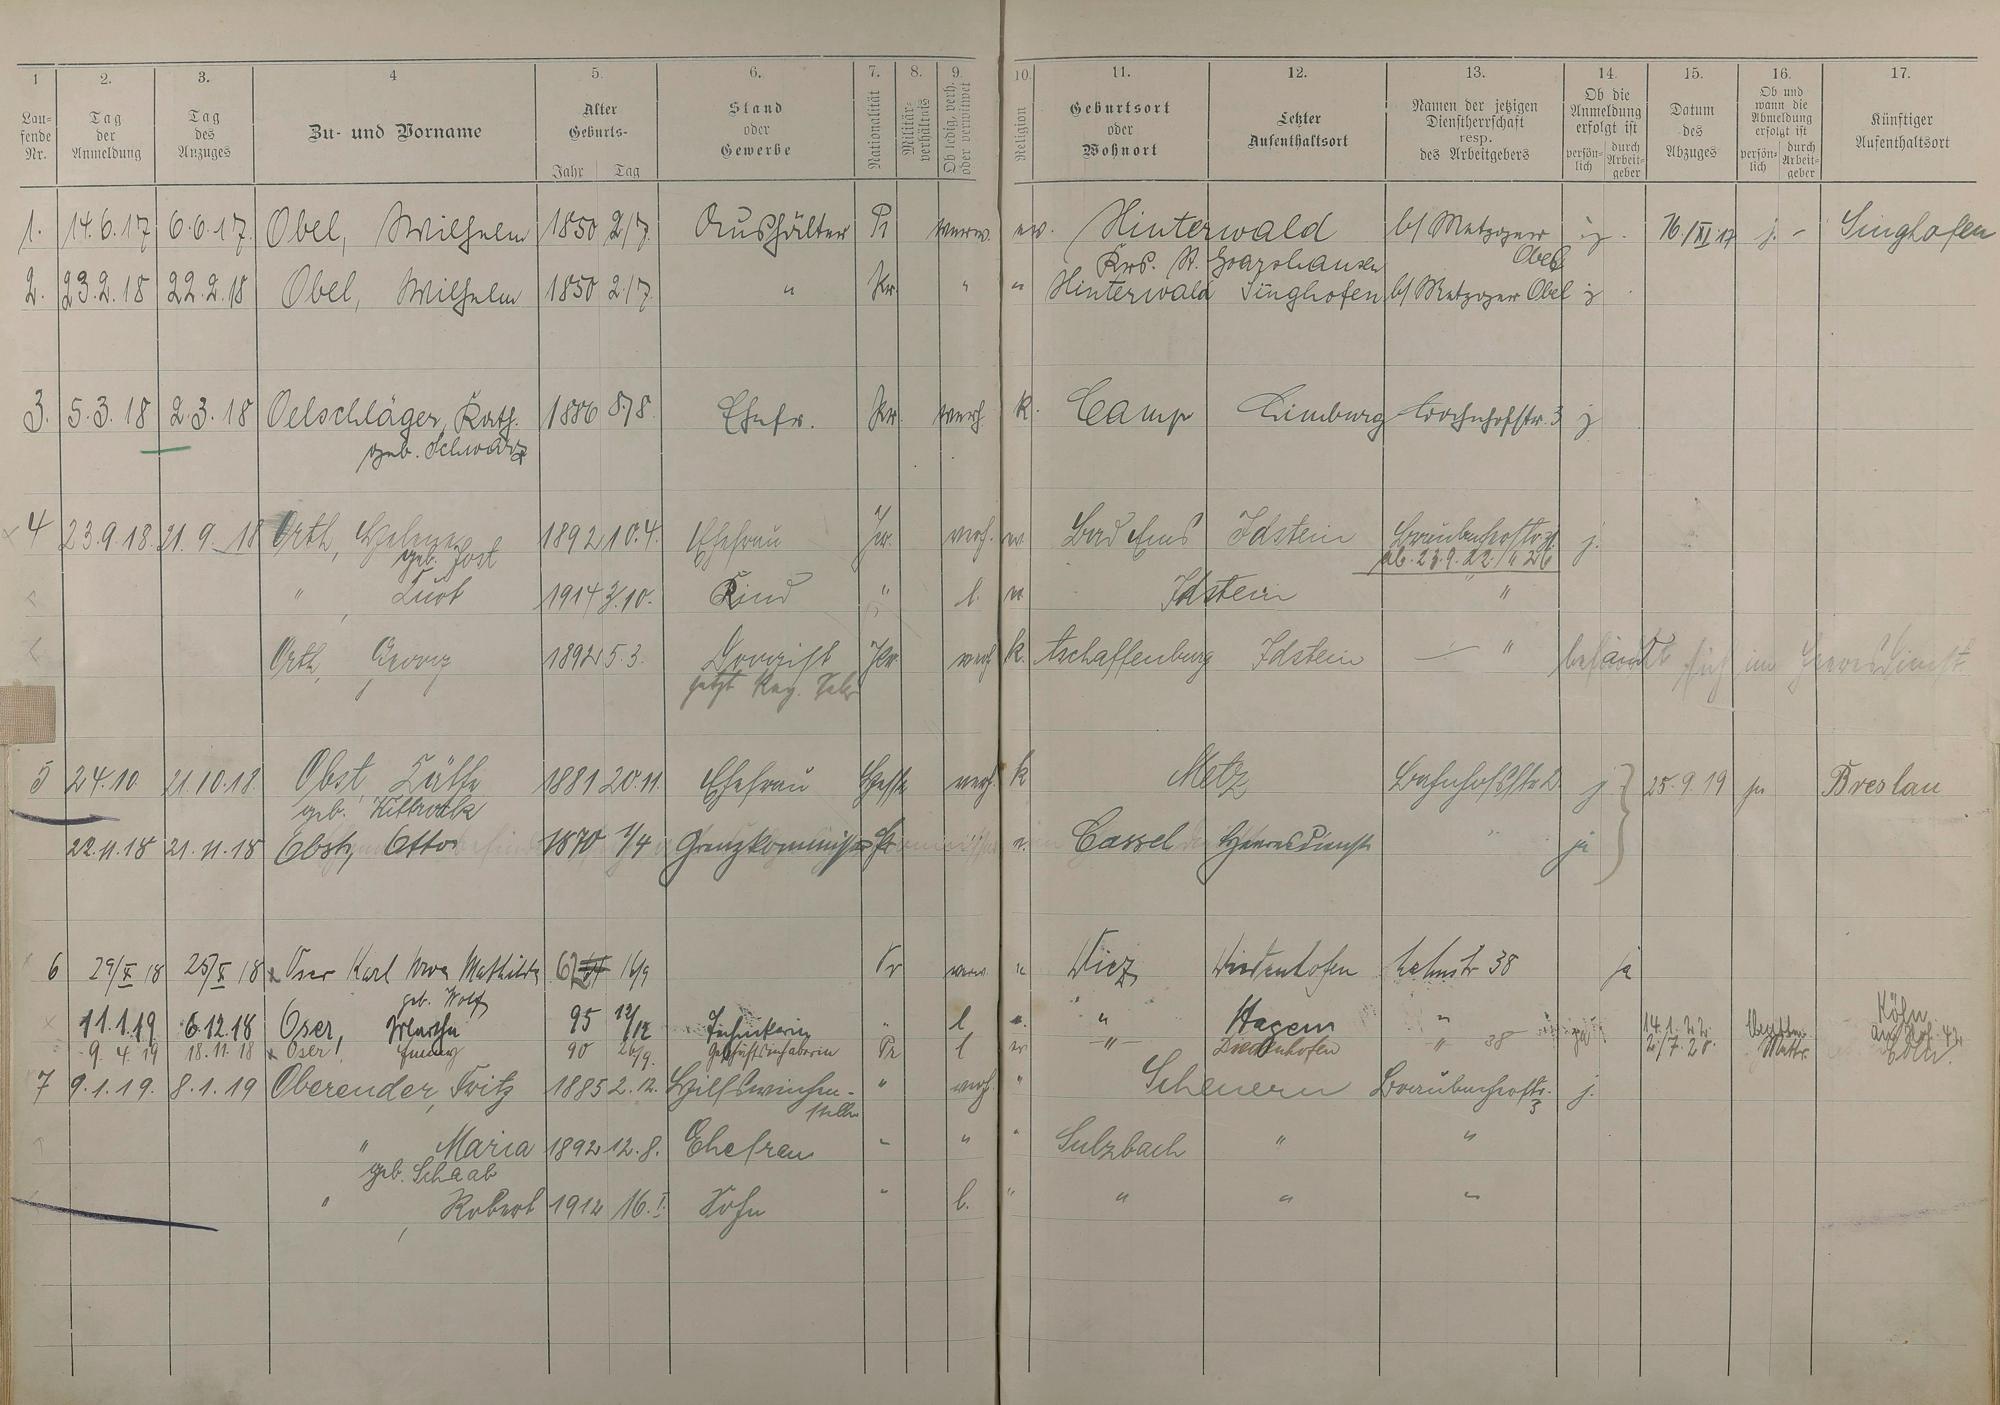 1 2. 3. 4 5. 6. 7. 8. 9. 10. 11. 12. 13. 14. 15. 16. 17.
Lau-
fende
Nr.
Tag
der
Anmeldung
Tag
des
Anzuges
Zu- und Vorname
Alter
Geburts-
Jahr Tag
Stand
oder
Gewerbe
Nationalität
Militär-
verhältnis
Ob ledig, verh.
oder verwitwet
Religion
Geburtsort
oder
Wohnort
Letzter
Aufenthaltsort
Namen der jetzigen
Dienstherrschaft
resp.
des Arbeitgebers
Ob die
Anmeldung
erfolgt ist
persön-
lich
durch
Arbeit-
geber
Datum
des
Abzuges
Ob und
wann die
Abmeldung
erfolgt ist
persön-
lich
durch
Arbeit-
geber
Künftiger
Aufenthaltsort
1. 14.6.17 6.6.17. Obel, Wilhelm 1850 2/7. Aushälter Pr verw. ev. Hinterwald b/ Metzger j. 16./XI.17 j. - Singhofen
Krs. St. Goarshausen Obel
2. 23.2.18 22.2.18 Obel, Wilhelm 1850 2/7. " Pr. " " Hinterwald Singhofen b/ Metzger Obel j
3. 5.3.18 2.3.18 Oelschläger, Kath. 1886 8/8. Ehefr. Pr. verh. k. Camp Limburg Bahnhofstr. 3 j
geb. Schwarz
4 23.9.18. 21.9.18 Orth, Helene 1892 10.4. Ehefrau Pr. verh. ev. Bad Ems Idstein j.
geb. Jost ab. 23.9.22.
" 1914 3/10. Kind " l. ev Idstein "
Orth, Georg 1892 5.3. Drogist Pr. verh k. Aschaffenburg Idstein — " befindet sich im Heeresdienst
jetzt
5 24.10 21.10.18. Obst, Käthe 1881 20.11. Ehefrau verh. k Metz Bahnhofstr 2. j 25.9.19 ja Breslau
geb. Kittrock
22.11.18 21.11.18 Obst, Otto 1870 1/4 Grenzkommissar Pr e. Cassel Heeresdienst " ja
6 29/X 18 25/X 18 Oser Karl Wwe Mathilde 62 16/9 Pr verw. " Diez Diedenhofen 38 ja
geb. Wolf
11.1.19 6.12.18 Oser, Martha 95 12/12 " l " " Hagen " ja 14.1.22. Köln
9.4.19 18.11.18 Oser, Emmy 90 26/9. Geschäftsinhaberin Pr l ev — " — Diedenhofen " 38 2/7.20. Köln.
7 9.1.19. 8.1.19 Oberender, Fritz 1885 2.12. Hilfsweichen- " verh " Scheuern Brückenhofstr. j.
steller 3
" Maria 1892 12.8. Ehefrau " " " Sulzbach " "
geb. Schaab
" , Robert 1912 16.I. Sohn " l. " " " "